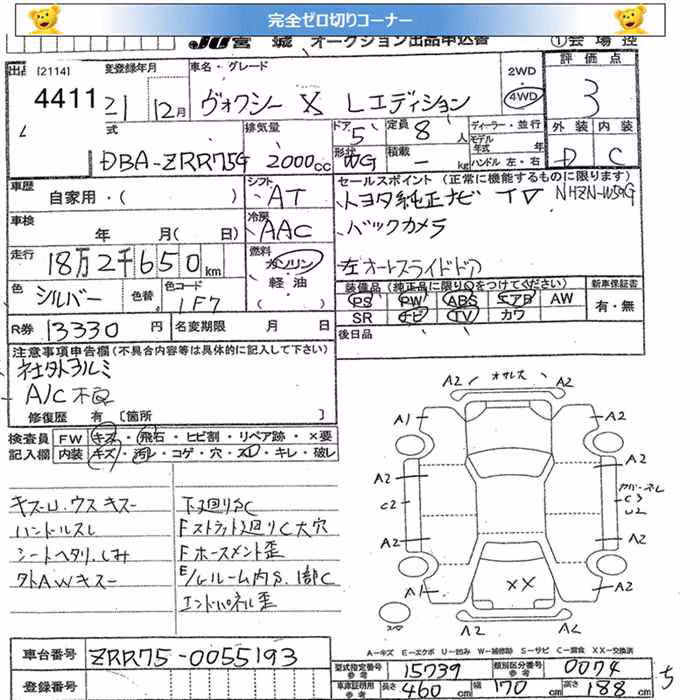 完全ゼロ切りコーナー
JU宮城 オークション出品申込書 ①会場控
[2114] 変登録年月 車名・グレード 2WD 評価点
4411 21 12月 ヴォクシー X Lエディション 4WD 3
排気量 ドア 定員 8人 ディーラー・並行 外装 内装
5 モデル年式 年
DBA-ZRR75G 2000cc 形状 WG 積載 - kg ハンドル 左・右 D C
車歴 自家用・( ) シフト AT セールスポイント (正常に機能するものに限ります)
トヨタ純正ナビ TV NHZN-W59G
車検 年 月( 日) 冷房 AAC バックカメラ
走行 18万2千650km 燃料 ガソリン・軽油 左オートスライドドア
色 シルバー 色替 色コード 1F7 装備品(純正品に限り○をつけてください) 新車保証書
PS PW ABS エアB AW 有・無
SR ナビ TV カワ
R券 13330円 名変期限 月 日 後日品
注意事項申告欄(不具合内容等は具体的に記入して下さい)
社外アルミ
A/C不良
修復歴 有 [箇所 ]
検査員 FW キズ・飛石・ヒビ割・リペア跡・×要
記入欄 内装 キズ・汚レ・コゲ・穴・スレ・キレ・破レ
キズーU.ウスキズー 下廻りS.C
ハンドルスレ Fストラット廻りC大穴
シートヘタリ.しみ Fホースメント歪
タトAWキズー E/Gルーム内S.1部C
エンドパネル歪
A2 オサレス A2
A1 A2
A2 A2
C2 カバーネし C3 U2
A2 A2
A1 XX A2
スペア A2 A2
A-キズ E-エクボ U-凹み W-補修跡 S-サビ C-腐食 XX-交換済
車台番号 ZRR75-0055193
型式指定番号 15739 類別区分番号 0074
登録番号 車庫証明用参考 長さ 460cm 幅 170cm 高さ 188cm